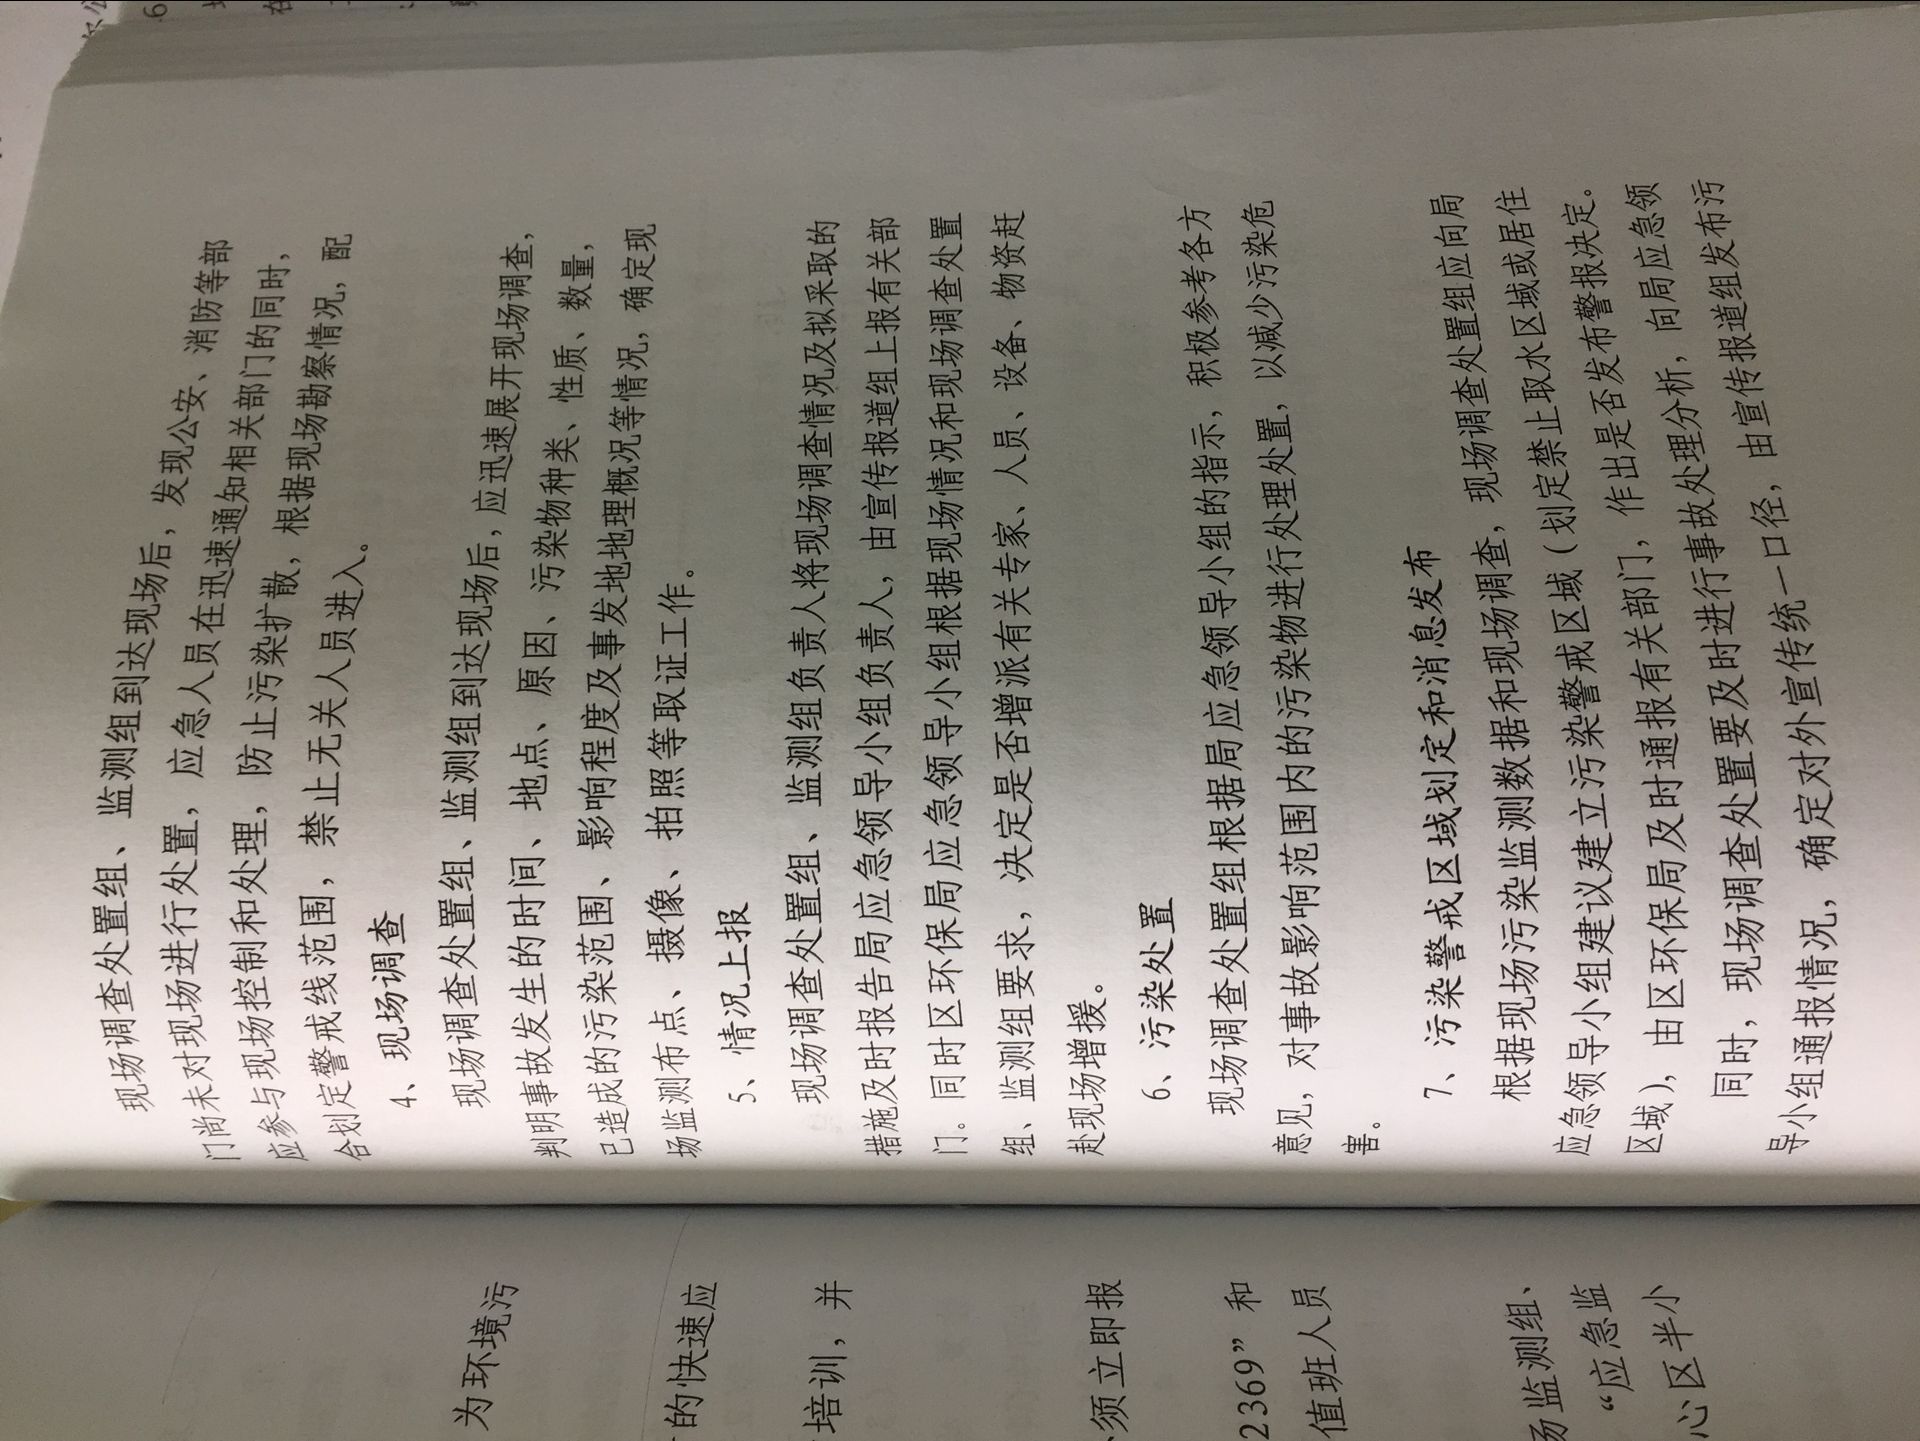 为环境污
的快速应
培训，并
须立即报
2369”和
值班人员
场监测组、
“应急监
心区半小
现场调查处置组、监测组到达现场后，发现公安、消防等部
门尚未对现场进行处置，应急人员在迅速通知相关部门的同时，
应参与现场控制和处理，防止污染扩散，根据现场勘察情况，配
合划定警戒线范围，禁止无关人员进入。
4、现场调查
现场调查处置组、监测组到达现场后，应迅速展开现场调查，
判明事故发生的时间、地点、原因、污染物种类、性质、数量，
已造成的污染范围、影响程度及事发地地理概况等情况，确定现
场监测布点、摄像、拍照等取证工作。
5、情况上报
现场调查处置组、监测组负责人将现场调查情况及拟采取的
措施及时报告局应急领导小组负责人，由宣传报道组上报有关部
门。同时区环保局应急领导小组根据现场情况和现场调查处置
组、监测组要求，决定是否增派有关专家、人员、设备、物资赶
赴现场增援。
6、污染处置
现场调查处置组根据局应急领导小组的指示，积极参考各方
意见，对事故影响范围内的污染物进行处理处置，以减少污染危
害。
7、污染警戒区域划定和消息发布
根据现场污染监测数据和现场调查，现场调查处置组应向局
应急领导小组建议建立污染警戒区域（划定禁止取水区域或居住
区域），由区环保局及时通报有关部门，作出是否发布警报决定。
同时，现场调查处置要及时进行事故处理分析，向局应急领
导小组通报情况，确定对外宣传统一口径，由宣传报道组发布污